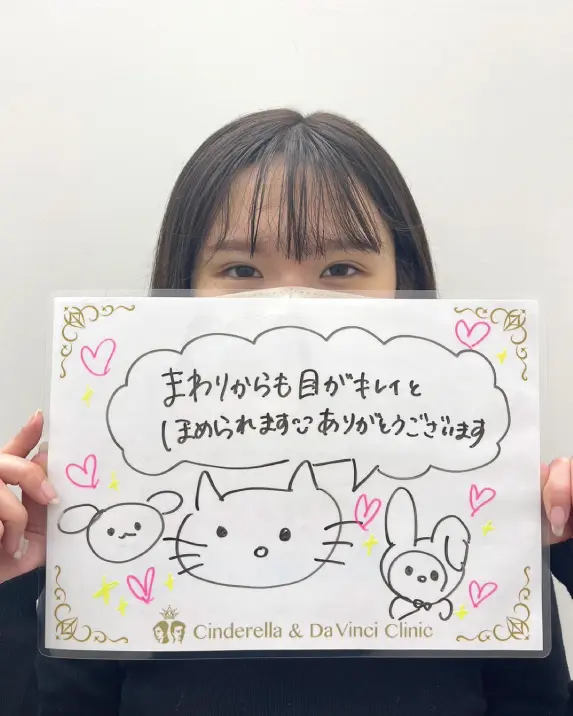 まわりからも目がキレイと
ほめられますありがとうございます
Cinderella & DaVinci Clinic